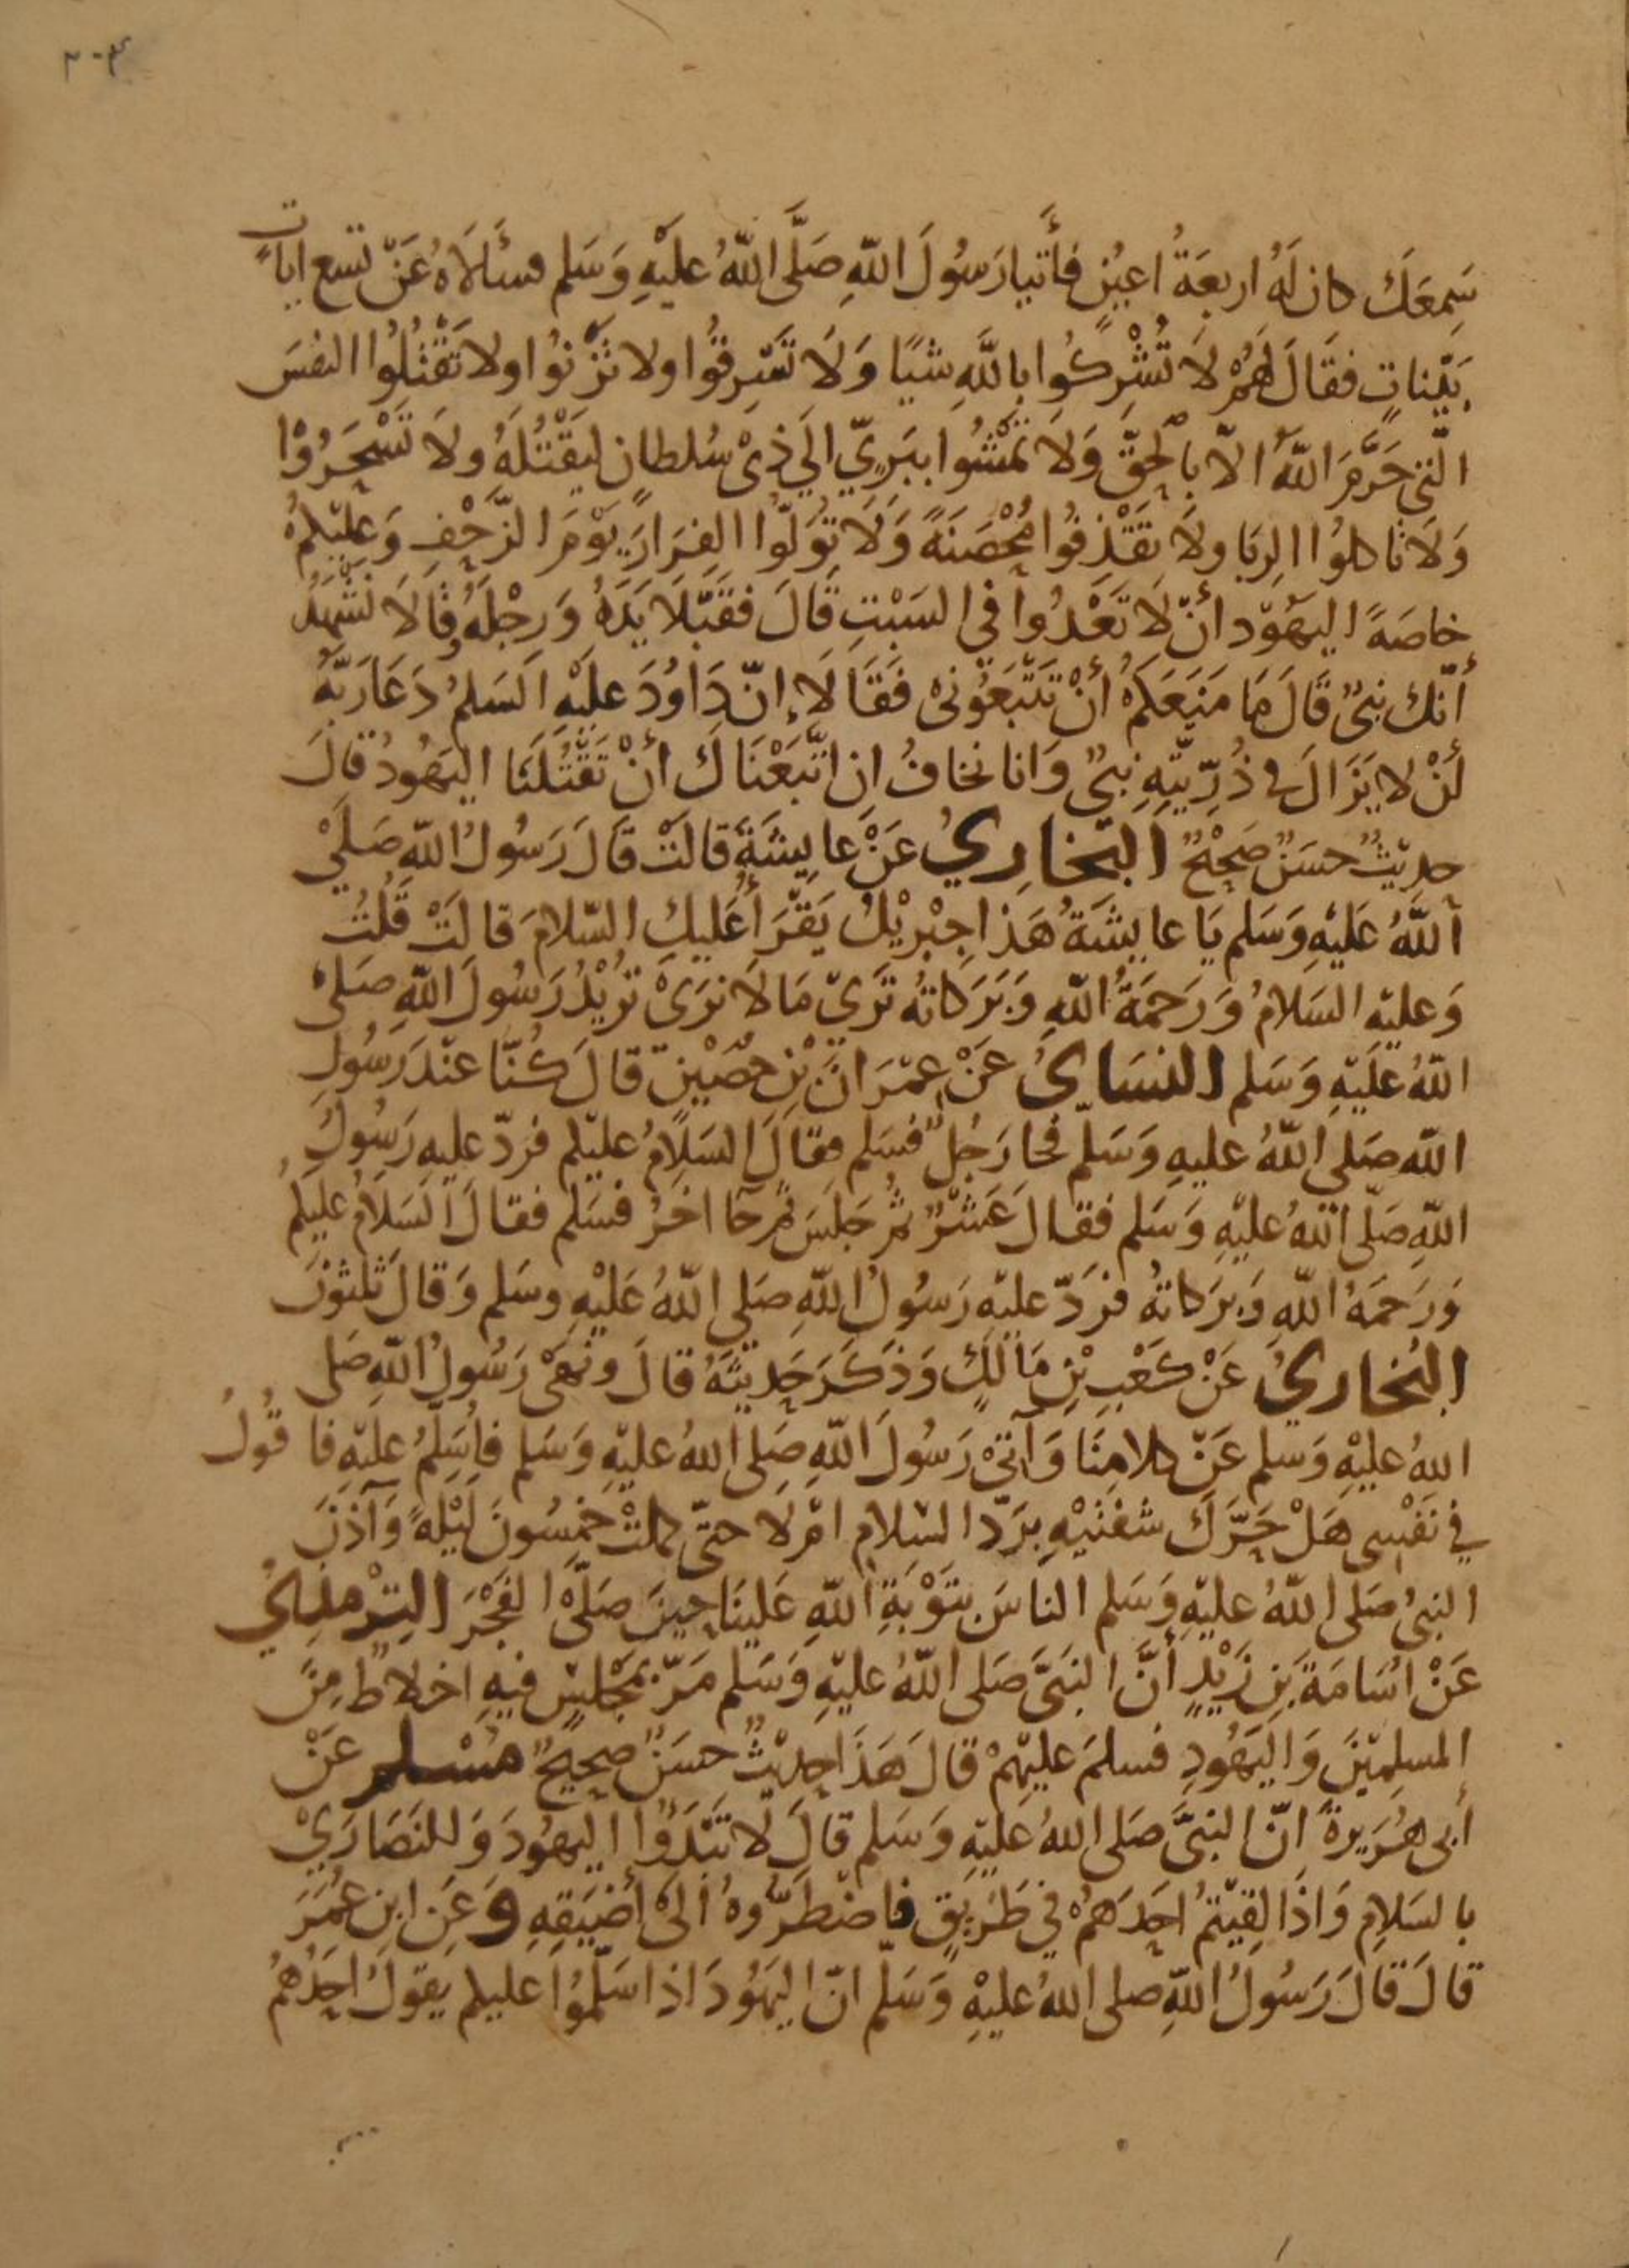 سَمِعَكَ كان لَهُ اربعَةُ اعيُنٍ فأتيا رَسُولَ اللّهِ صَلَّى اللّهُ عليْهِ وَسَلم فسئَلاَهُ عَنْ تسع اياتٍ
بَيّناتٍ فقَالَ لَهُمْ لاَ تُشْرِكُوا باللّهِ شيًا وَلاَ تَسْرِقُوا ولا تَزْنوُا ولا تَقْتُلُوا النفسَ
الّتى حَرَّمَ اللّهُ الاّ بالحقّ وَلاَ تَمْشُوا ببَرِيّ الَي ذِىْ سُلطان ليَقْتُلَهُ ولاَ تَسْحَرُوْا
وَلاَ تاكلوُا الرِبَا ولاَ تقَذِفُوا مُحْصَنَةً وَلاَ توَلّوُا الفِرَارَ يَوْمَ الزَّحْفِ وَعليْكمْ
خاصَةً اليهَوُد أنّ لاَ تَعْدُوا في السَبْتِ قَالَ فقَبّلاَ يَدَهُ وَرِجْلَهُ قالاَ نَشْهَدُ
أنّك نبىٌ قَالَ مَا مَنَعَكمْ أنْ تَتَّبَعُونى فَقَالاَ إنّ دَاوُدَ عليْهِ السَلمُ دَعَا رَبّهُ
أنْ لا يَزَالَ في ذُرِّيّتِهِ نبىٌ وَانا نخافُ ان اتّبَعْنَاكَ أنْ تَقْتُلَنَا اليَهُودُ قالَ
حديثٌ حسَنٌ صَحِيْحٌ البُخاريُ عَنْ عايِشَةَ قالَتْ قَالَ رَسُولُ اللّهِ صَلّي
اللّهُ عَليْهِ وَسَلم يَا عايِشَةُ هَذا جِبْرِيْلُ يَقْرَأ عَليكِ السّلامَ قالَتْ قُلتُ
وَعليْهِ السَلامُ وَرَحمَةُ اللّهِ وَبَرَكاتهُ تَرَيْ مَا لاَ نرَىْ تُرِيْدُ رَسُولَ اللّهِ صَلىْ
اللّهُ عليْهِ وَسَلم النسَايُ عَنْ عِمْرَانَ بْنِ حصَيْنٍ قالَ كُنّا عنْدَ رَسُولِ
اللّه صَلي اللّهُ عليهِ وَسَلم فجا رَجُلٌ فسَلم فقالَ السَلامُ عليْكم فردّ عليه رَسُولُ
اللّهِ صَلّى اللّهُ عليْهِ وَسَلم فقالَ عَشْرٌ ثمَّ جَلسَ ثمَّ جآ اخرُ فسَلم فقالَ السَلامُ عليكمْ
وَرَحمَةُ اللّهِ وَبرَكاتهُ فرَدّ عليْهِ رَسُولُ اللّهِ صَلى اللّهُ عَليْهِ وسَلم وَقالَ ثلثوْنَ
البُخاريُ عَنْ كعْبِ بْنِ مَالكٍ وَذَكرَ حَديثهُ قالَ ونَهَىْ رَسُولُ اللّهِ صَلى
اللهُ عليْهِ وَسلم عَنْ كلامِنَا وَآتىْ رَسُولَ اللّهِ صَلى اللهُ عليْهِ وَسَلم فاُسَلِّمُ عليْهِ فاقُولُ
في نَفْسِى هَلْ حَرَّكَ شفتيْهِ برَدّ السّلامِ امْ لا حتّى كملتْ خمسُونَ ليْلَةً وَآذَنَ
النبىُ صَلى اللّهُ عليْهِ وَسَلم الناسَ بتَوْبَةِ اللّهِ عَلينَا حِينَ صَلّى الفَجْرَ التِرْمذيُ
عَنْ اُسَامَةَ بَنِ زَيْدٍ أنَّ النبَىَّ صَلى اللّهُ عليْهِ وَسَلم مَرّ بمَجْلسٍ فيهِ اخلاطٌ مِنَ
المسلِمِيْنَ وَاليَهُودِ فسلمَ عليْهِمْ قالَ هَذَا حديثٌ حسَنٌ صحيحٌ مسْلم عَنْ
أبى هُرَيرةَ انّ النبىَّ صَلى اللهُ عَليْهِ وَسَلم قالَ لاَ تَبْدَؤُا اليهُودَ وَللنَصَارَيْ
بالسَلامِ وَاذَا لقيْتمْ احَدَهمْ في طَرِيقٍ فاضْطَرّوهُ الىْ أضيَقِهِ وَعَنِ ابن عُمَرَ
قالَ قالَ رَسُولُ اللّهِ صلى اللهُ عليْهِ وَسَلم انّ اليهُودَ اذا سَلّمُوْا عليكم يقولُ احَدُهمُ